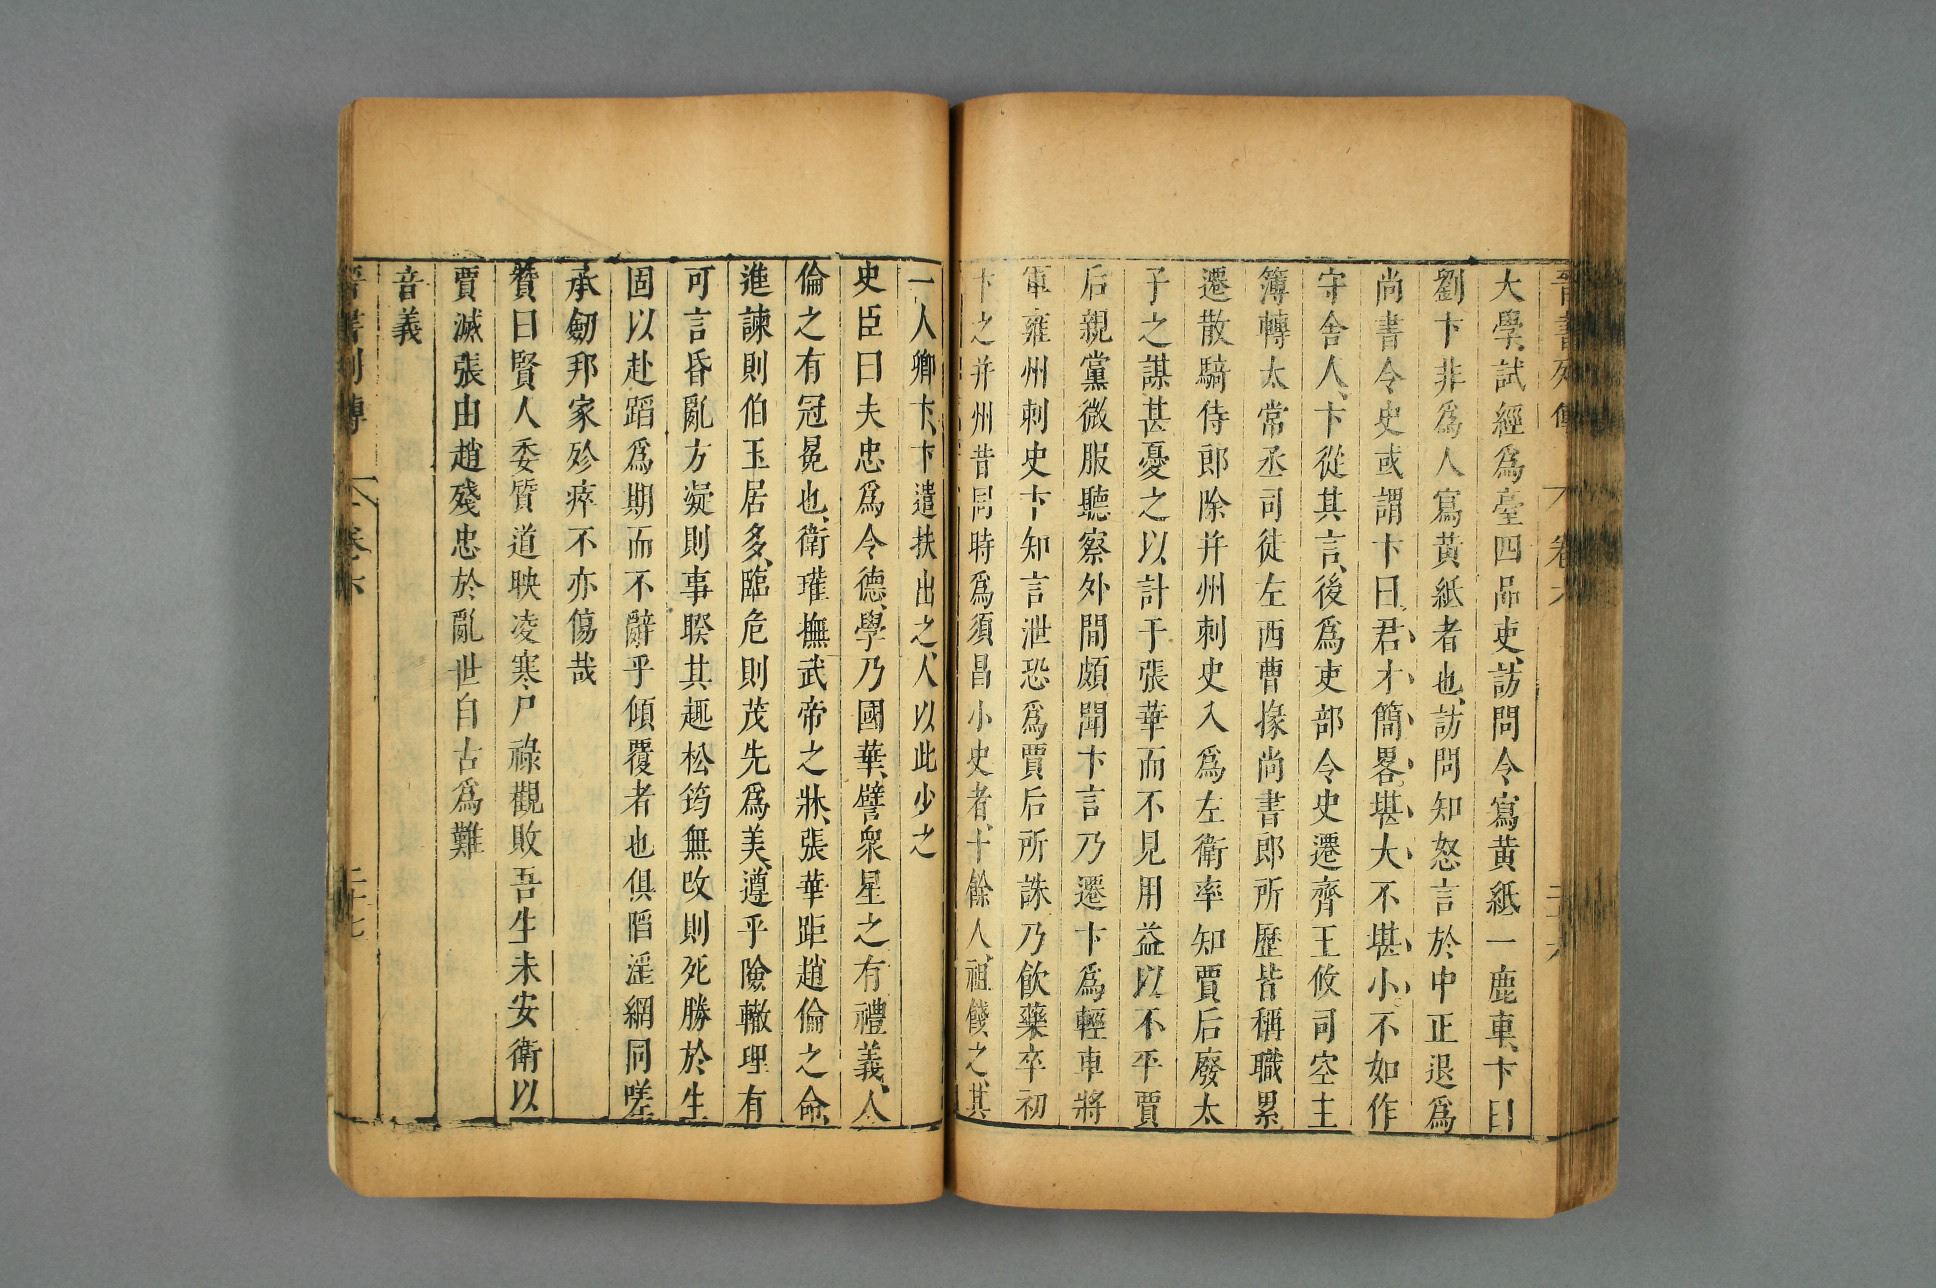 晉書列傳 卷六 二十六
大學試經爲臺四品吏訪問令寫黃紙一鹿車卞曰
劉卞非爲人寫黃紙者也訪問知怒言於中正退爲
尚書令史或謂卞曰君才簡畧堪大不堪小不如作
守舍人卞從其言後爲吏部令史遷齊王攸司空主
簿轉太常丞司徒左西曹掾尚書郎所歷皆稱職累
遷散騎侍郎除并州刺史入爲左衛率知賈后廢太
子之謀甚憂之以計于張華而不見用益以不平賈
后親黨微服聽察外間頗聞卞言乃遷卞爲輕車將
軍雍州刺史卞知言泄恐爲賈后所誅乃飲藥卒初
卞之并州昔同時爲須昌小史者十餘人祖餞之其
一人卿卞卞遣扶出之人以此少之
史臣曰夫忠爲令德學乃國華譬衆星之有禮義人
倫之有冠冕也衛瓘撫武帝之牀張華距趙倫之命
進諫則伯玉居多臨危則茂先爲美遵乎險轍理有
可言昏亂方凝則事睽其趣松筠無改則死勝於生
固以赴蹈爲期而不辭乎傾覆者也俱䧟淫網同嗟
承劒邦家殄瘁不亦傷哉
贊曰賢人委質道映凌寒尸祿觀敗吾生未安衛以
賈滅張由趙殘忠於亂世自古爲難
音義
晉書列傳 卷六 二十七